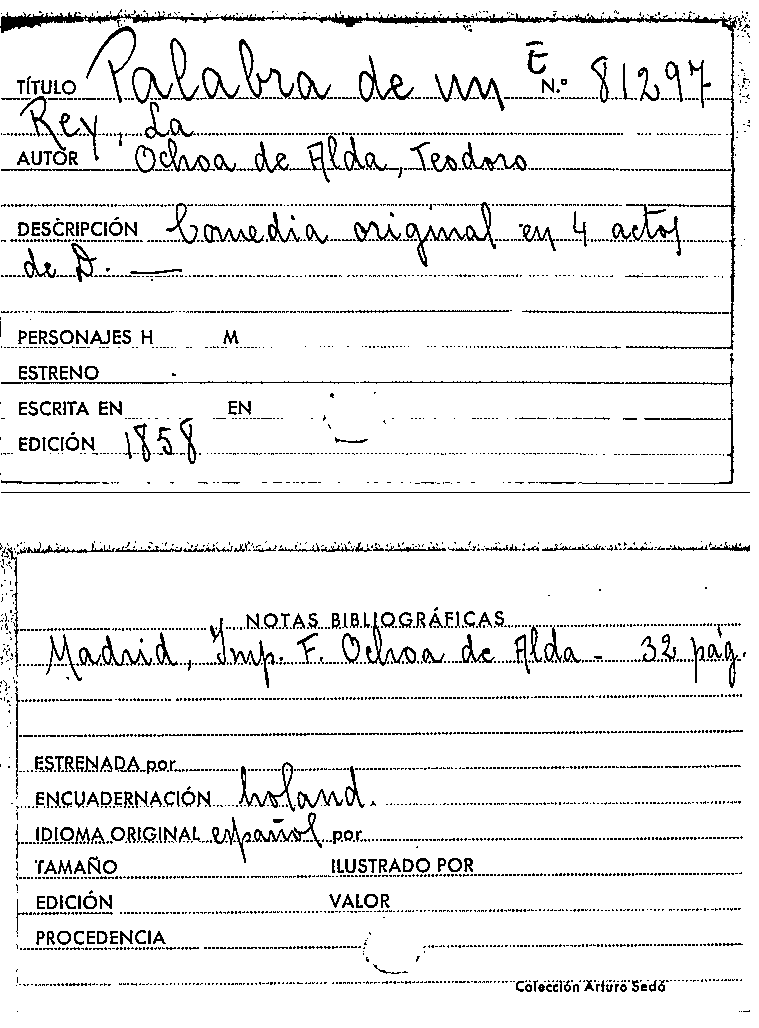 TÍTULO Palabra de un E N.º 81297
Rey, La
AUTOR Ochoa de Alda, Teodoro
DESCRIPCIÓN Comedia original en 4 actos
de D. —
PERSONAJES H M
ESTRENO
ESCRITA EN EN
EDICIÓN 1858
NOTAS BIBLIOGRÁFICAS
Madrid, Imp. F. Ochoa de Alda - 32 pág.
ESTRENADA por
ENCUADERNACIÓN holand.
IDIOMA ORIGINAL español por
TAMAÑO ILUSTRADO POR
EDICIÓN VALOR
PROCEDENCIA
Colección Arturo Sedó